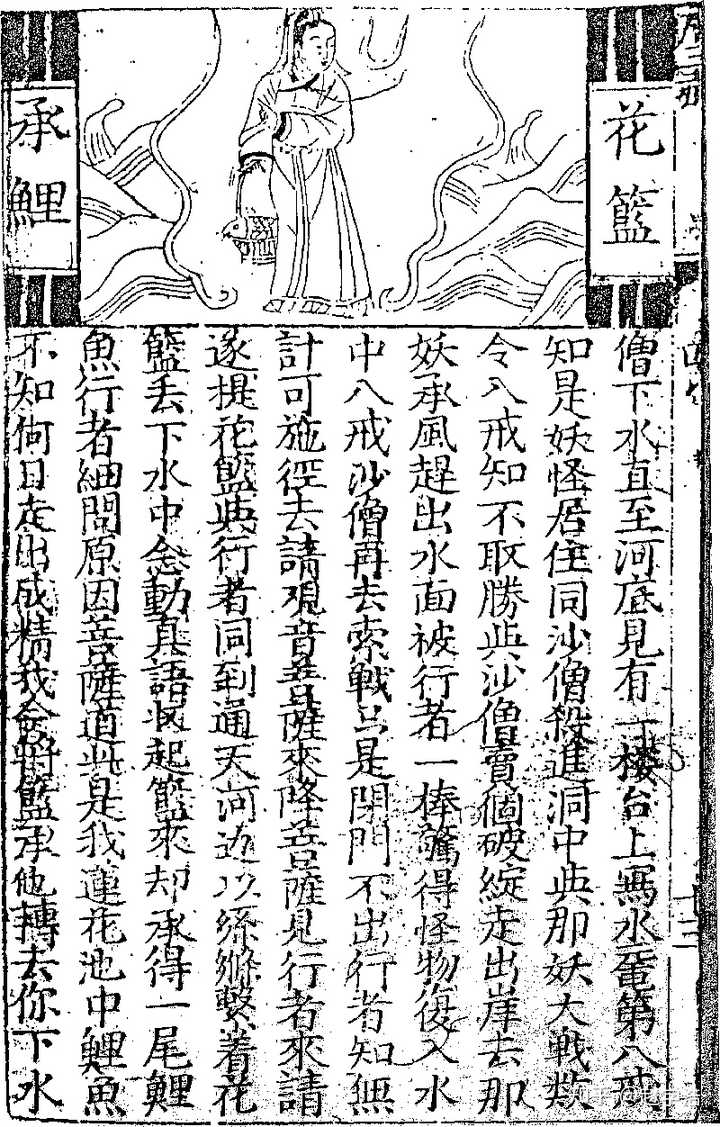 花籃
承鯉
僧下水直至河底見有一楼台上寫水黿第八戒
知是妖怪居住同沙僧殺進洞中與那妖大戰数
令八戒知不取勝與沙僧賣個破綻走出岸去那
妖承風趕出水面被行者一棒驚得怪物復入水
中八戒沙僧再去索戰只是閉門不出行者知無
計可施徑去請观音菩薩來降菩薩見行者來請
遂提花籃與行者同到通天河边以絲縧繫着花
籃丢下水中念動真語收起籃來却承得一尾鯉
魚行者細問原因菩薩道此是我蓮花池中鯉魚
不知何日走出成精我今將籃承他轉去你下水